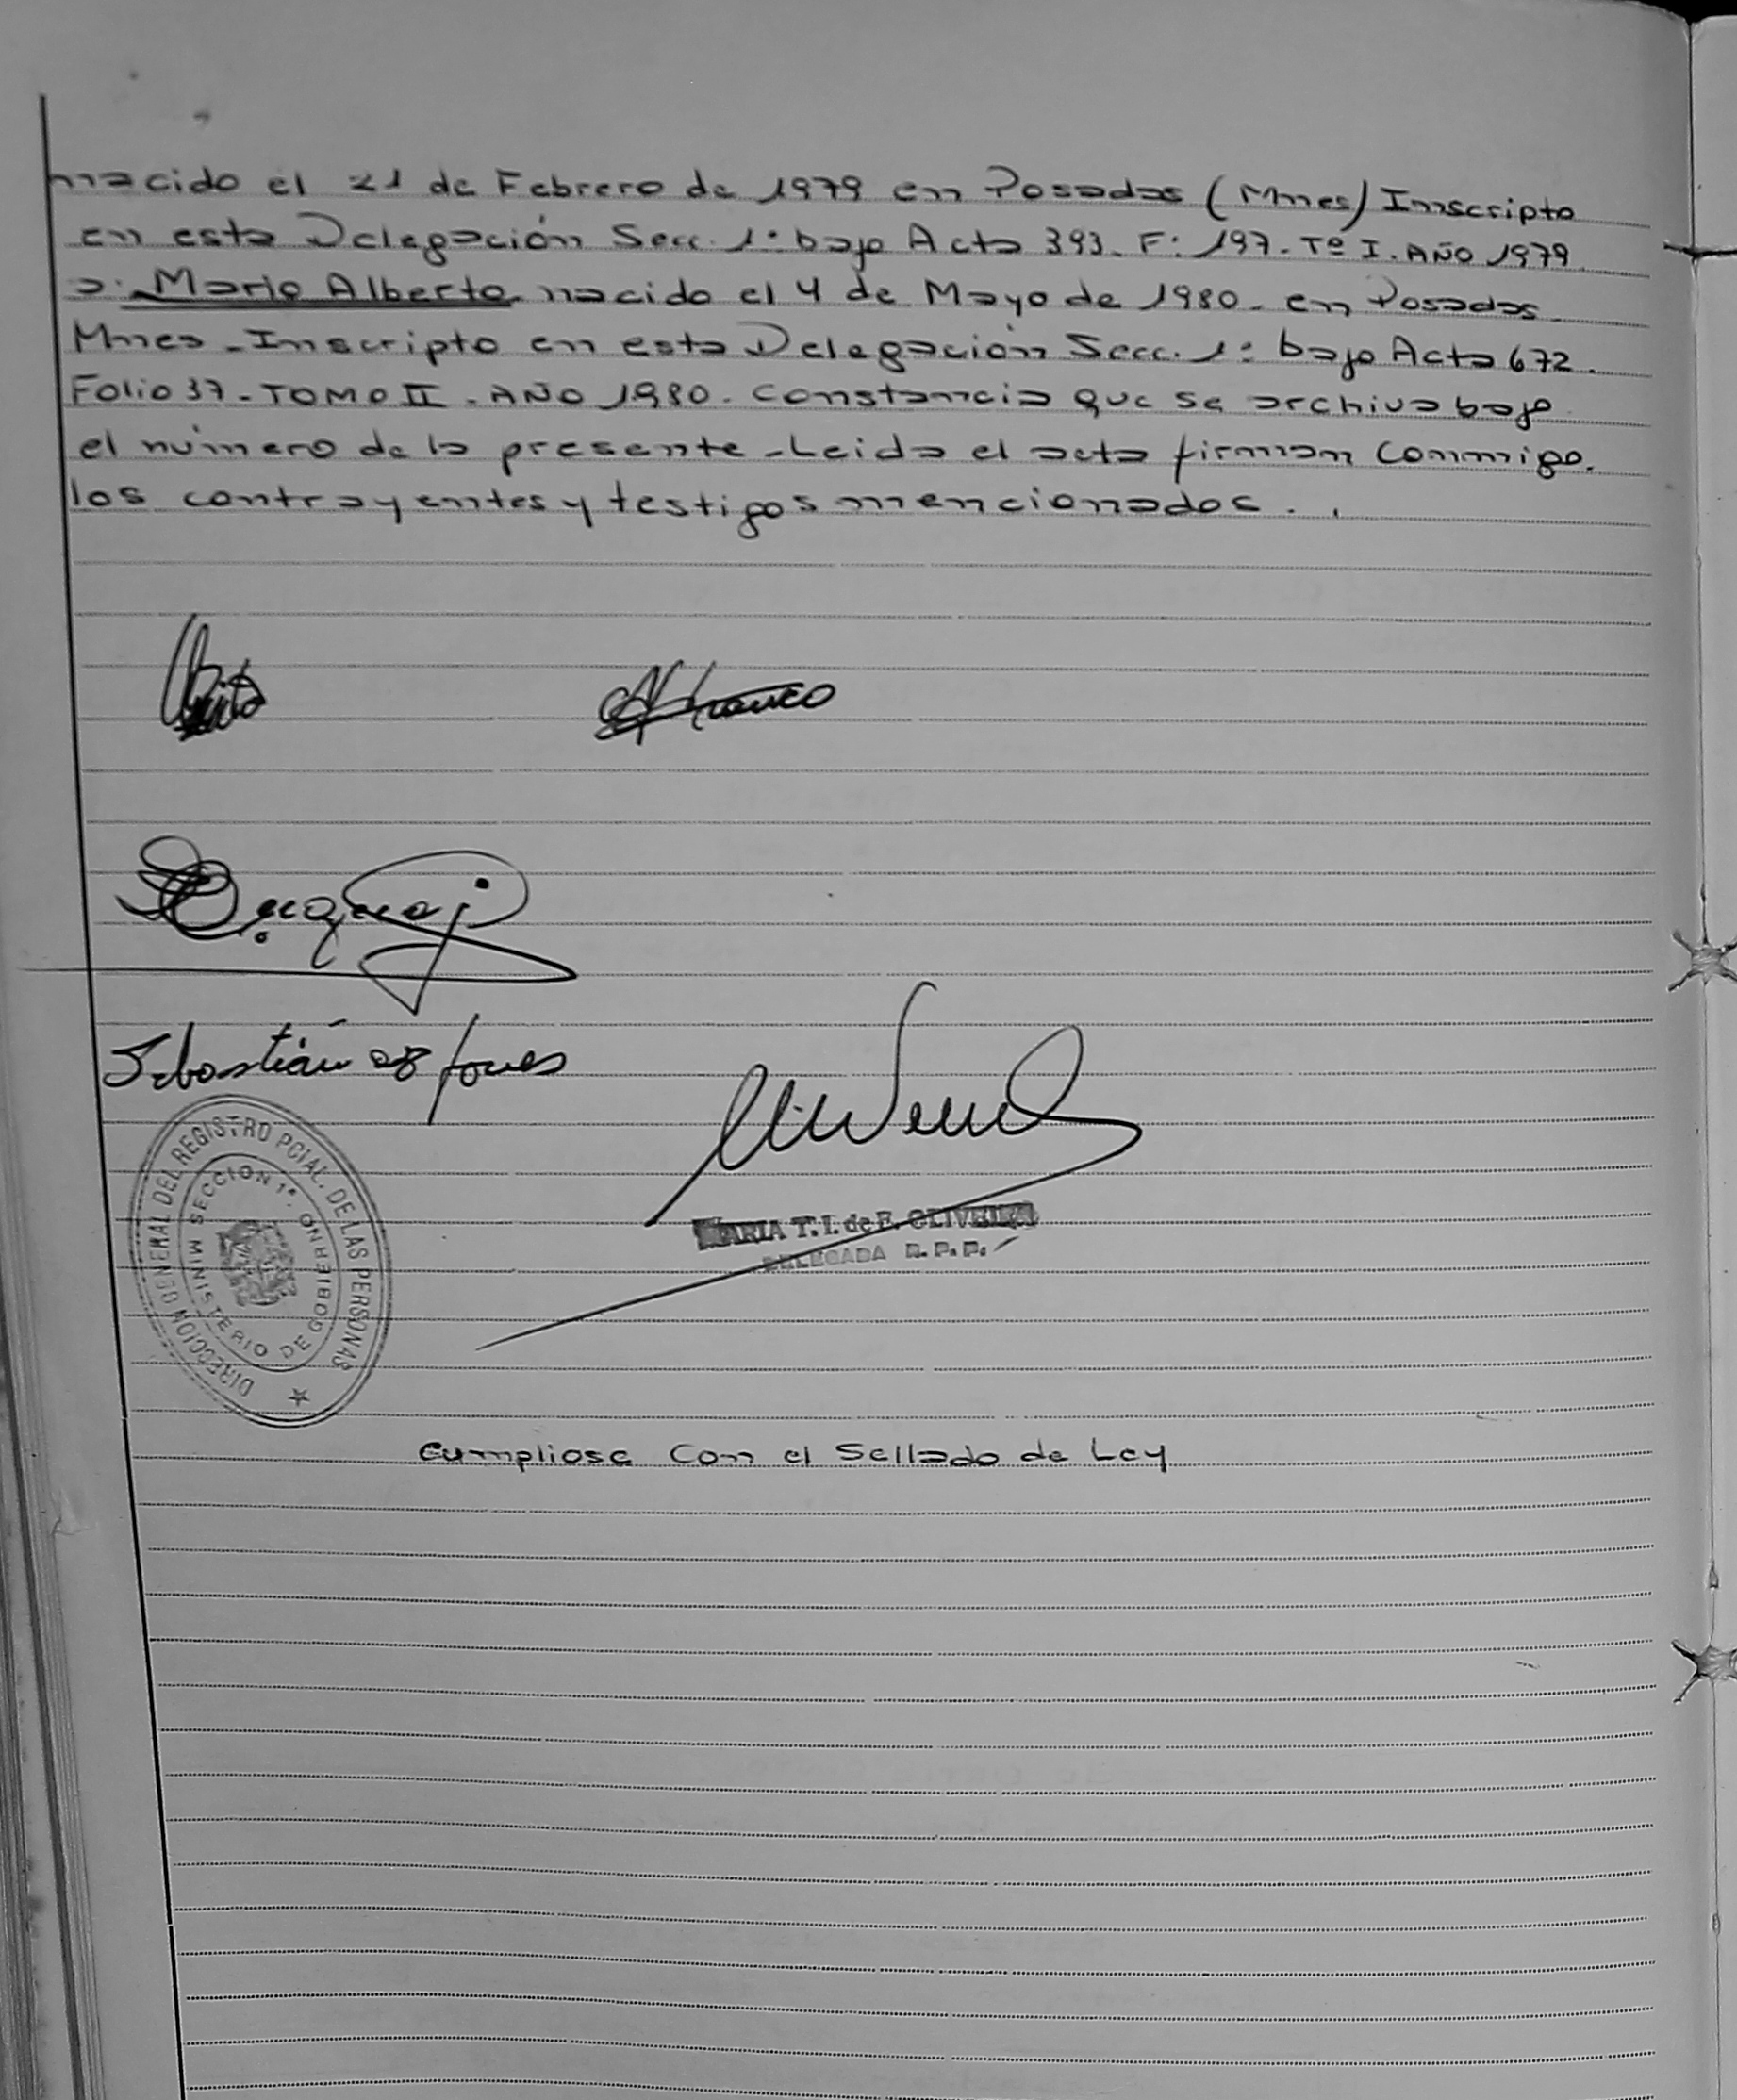 nacido el 21 de Febrero de 1979 en Posadas (Mnes) Inscripto
en esta Delegación Secc. 1: bajo Acta 393. F: 197. Tº I. AÑO 1979.
a. Mario Alberto nacido el 4 de Mayo de 1980. en Posadas
Mnes - Inscripto en esta Delegación Secc. 1: bajo Acta 672.
Folio 37 - TOMO II - AÑO 1980. Constancia que se archiva bajo
el número de la presente - Leida el acta firman Conmigo.
los contrayentes y testigos mencionados. .
Sebastián
DIRECCION GENERAL DEL REGISTRO PCIAL. DE LAS PERSONAS
MINISTERIO DE GOBIERNO
SECCION 1ª.
MARIA T. I. de F. OLIVEIRA
DELEGADA R. P. P.
Cumpliose Con el Sellado de Ley